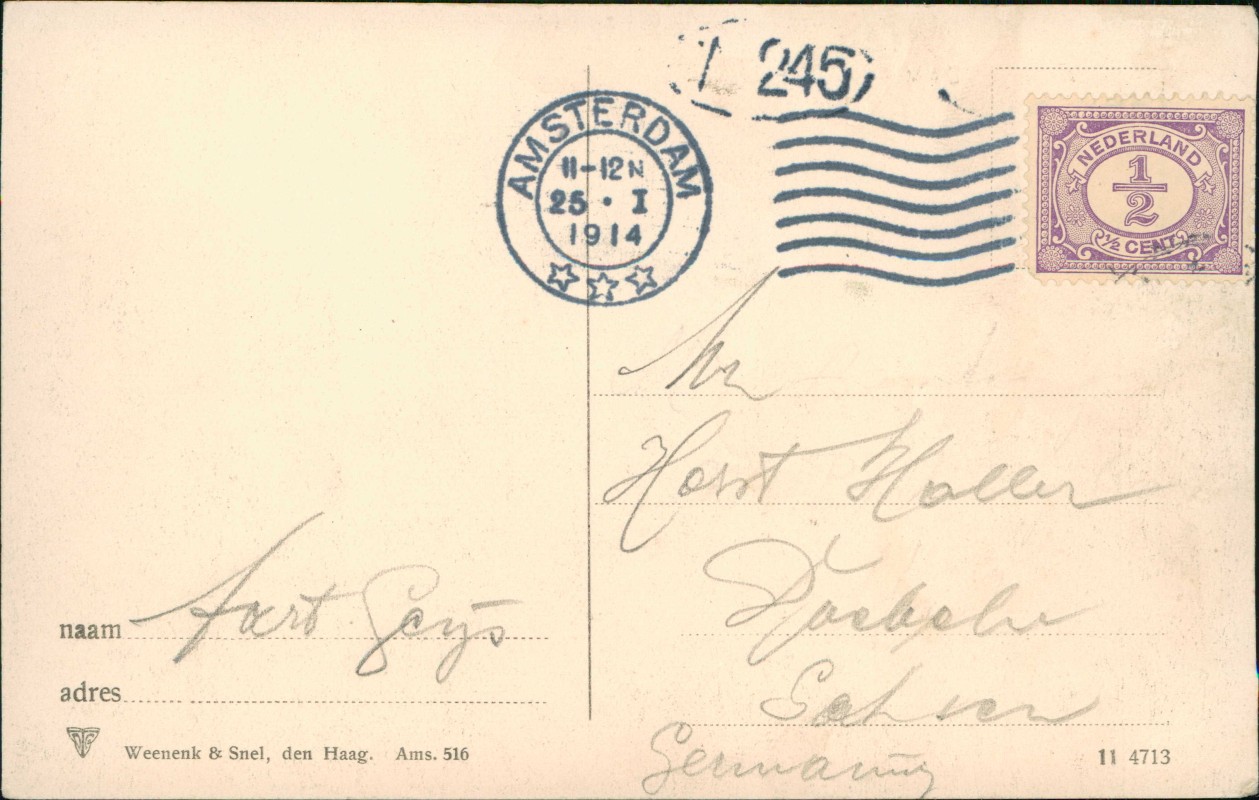 245
AMSTERDAM
11-12 N
25 · I
1914
NEDERLAND
1/2
1/2 CENT
Horst Haller
Germany
naam Aart Geijs
adres
Weenenk & Snel, den Haag. Ams. 516
11 4713